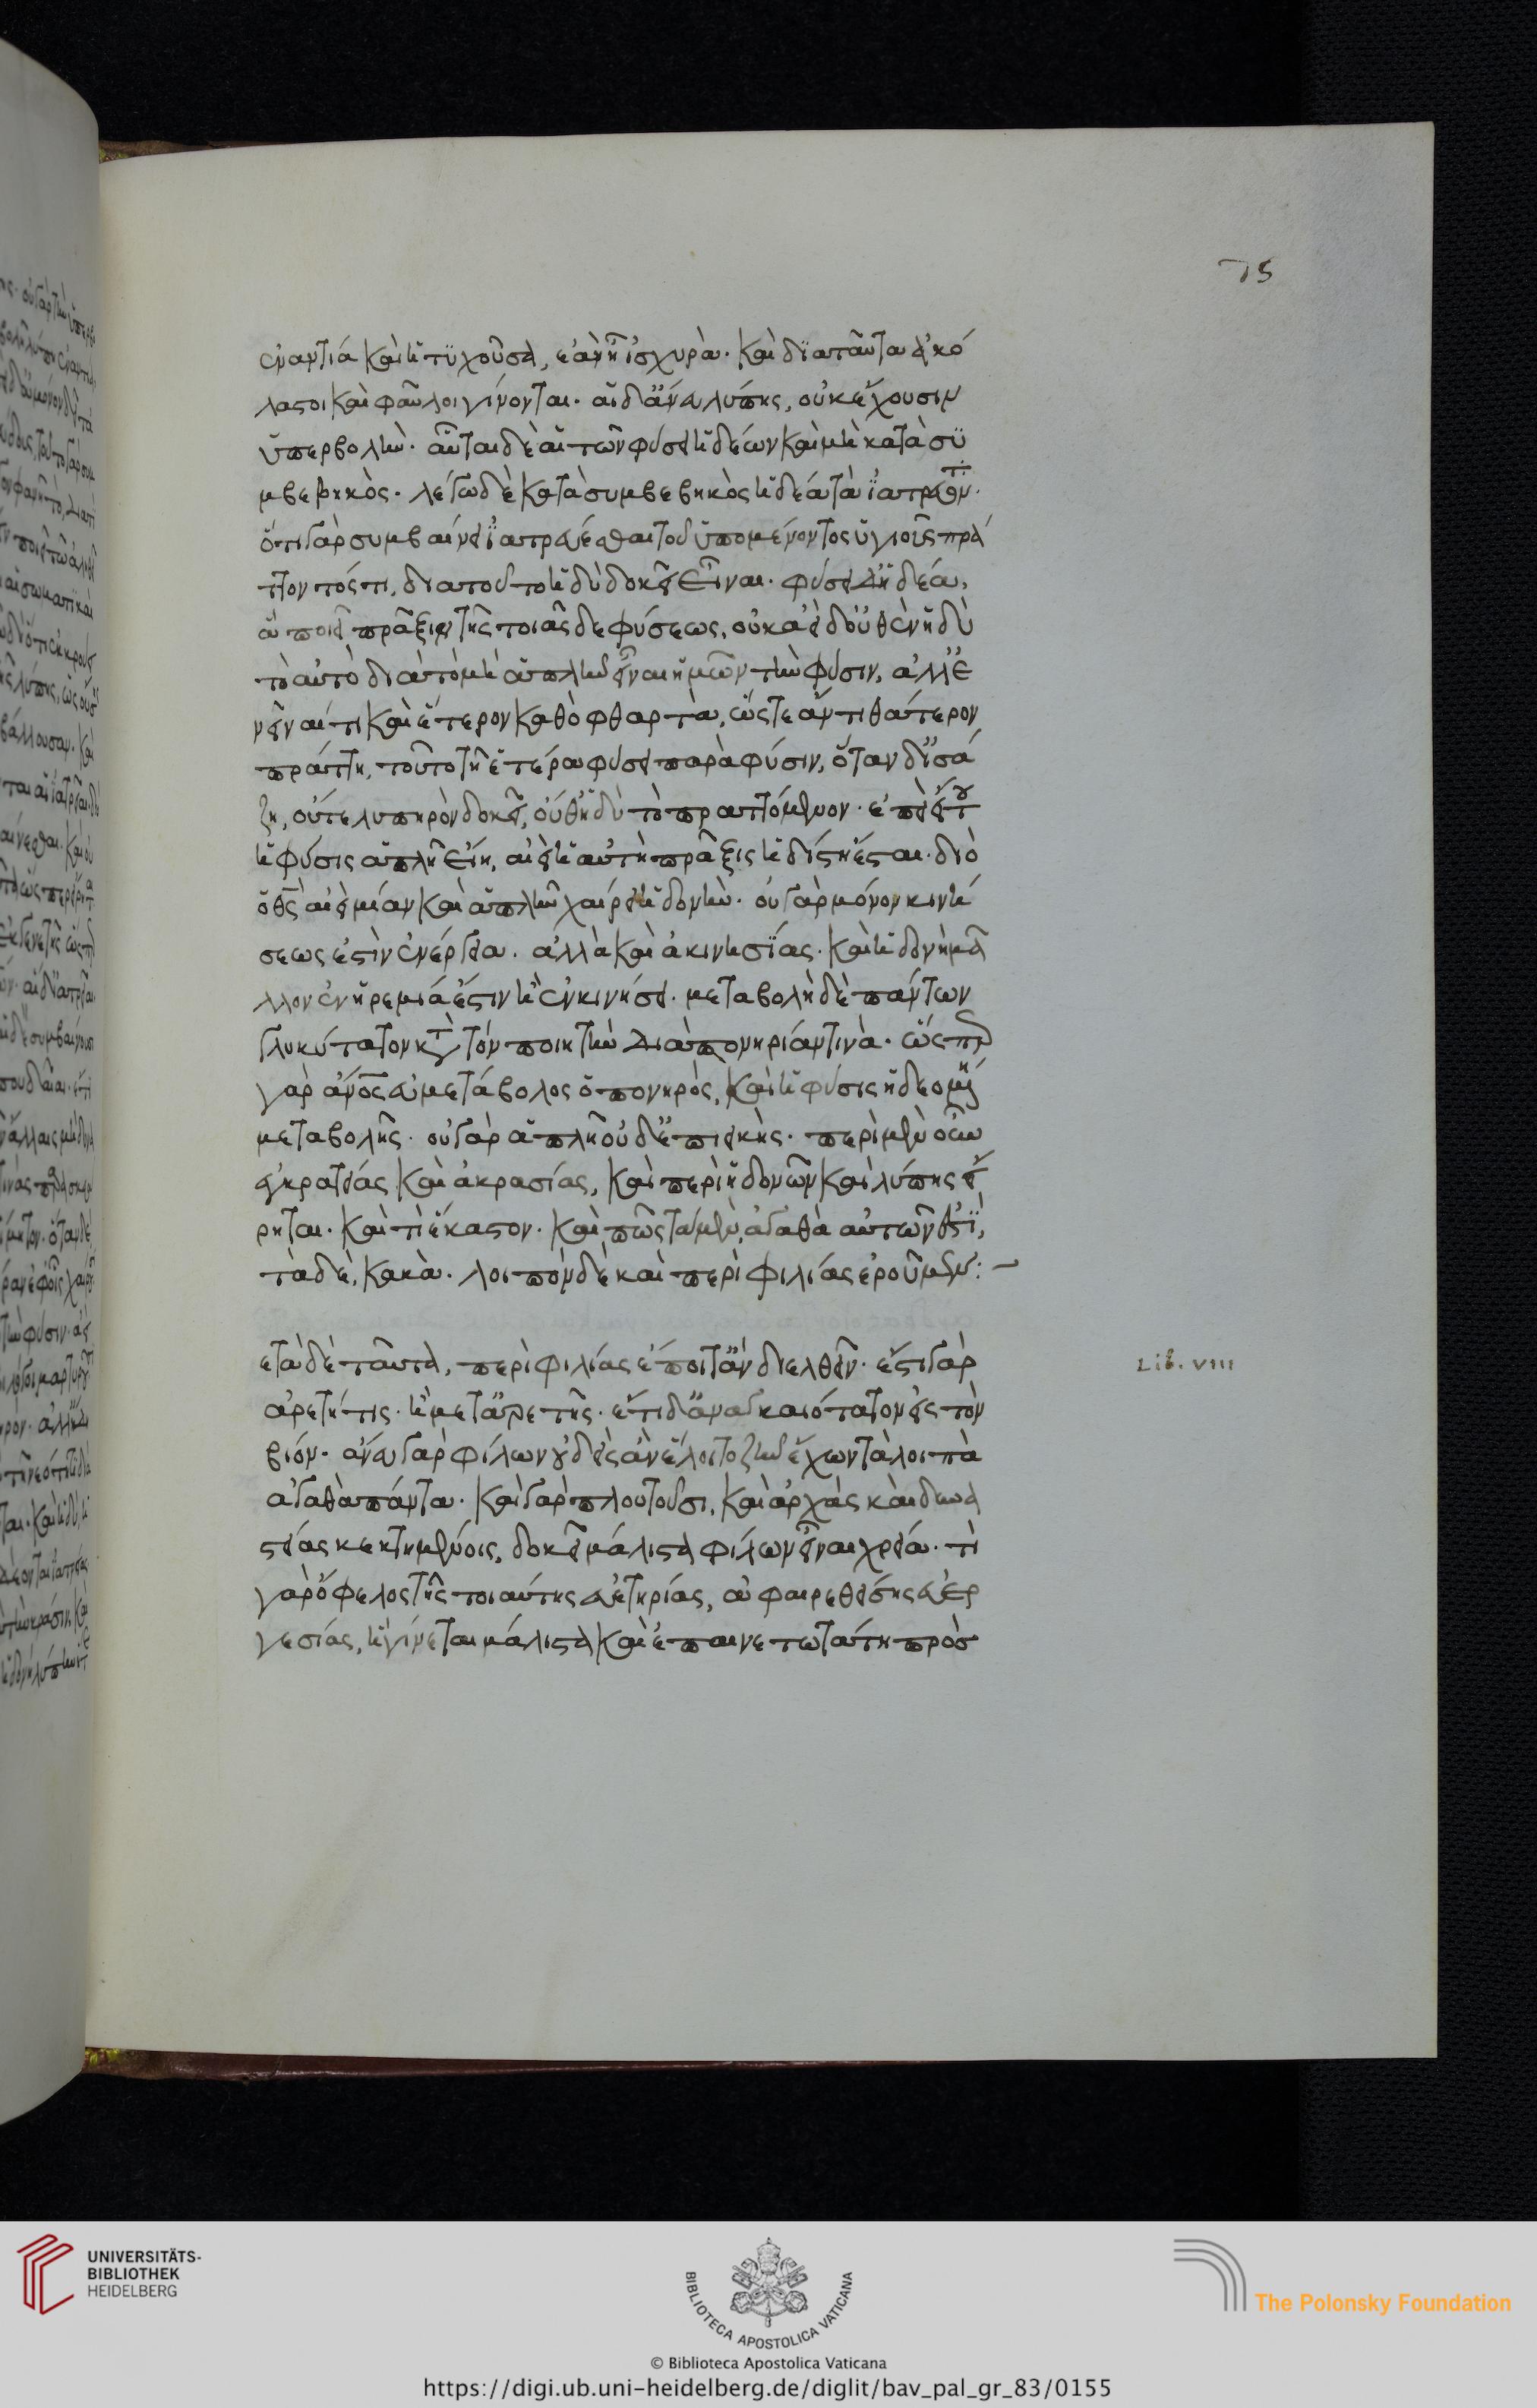 ἐναντία καὶ ἡ τυχοῦσα, ἐὰν ᾖ ἰσχυρὰ. καὶ διὰ ταῦτα ἀκό
λαστοι καὶ φαῦλοι γίνονται. αἱ δ' ἄνευ λύπης, οὐκ ἔχουσιν
ὑπερβολὴν. αὗται δὲ αἱ τῶν φύσει ἡδέων καὶ μὴ κατὰ συ
μβεβηκὸς. λέγω δὲ κατὰ συμβεβηκὸς ἡδέα τὰ ἰατρεύοντ.
ὅτι γὰρ συμβαίνει ἰατρεύεσθαι τοῦ ὑπομένοντος ὑγιοῦς πρά
ττοντός τι, διὰ τοῦτο ἡδὺ δοκεῖ εἶναι. φύσει δ' ἡδέα,
ἃ ποιεῖ πρᾶξιν τῆς τοιᾶσδε φύσεως, οὐκ ἀεὶ δ' οὐθὲν ἡδὺ
τὸ αὐτὸ διὰ τὸ μὴ ἁπλῆν εἶναι ἡμῶν τὴν φύσιν, ἀλλ' ἐ
νεῖναί τι καὶ ἕτερον καθὸ φθαρτὰ, ὥστε ἄν τι θάτερον
πράττῃ, τοῦτο τῇ ἑτέρᾳ φύσει παρὰ φύσιν, ὅταν δ' ἰσά
ζῃ, οὔτε λυπηρὸν δοκεῖ, οὔθ' ἡδὺ τὸ πραττόμενον. ἐπεὶ εἴ του
ἡ φύσις ἁπλῆ εἴη, ἀεὶ ἡ αὐτὴ πρᾶξις ἡδίστη ἔσται. διὸ
ὁ θς ἀεὶ μίαν καὶ ἁπλῆν χαίρει ἡδονὴν. οὐ γὰρ μόνον κινή
σεως ἐστὶν ἐνέργεια. ἀλλὰ καὶ ἀκινησίας. καὶ ἡδονὴ μᾶ
λλον ἐν ἠρεμία ἐστιν ἢ ἐν κινήσει. μεταβολὴ δὲ πάντων
γλυκύτατον κατὰ τὸν ποιητὴν διὰ πονηρίαν τινὰ. ὥσπερ
γὰρ ἄνος εὐμετάβολος ὁ πονηρὸς, καὶ ἡ φύσις ἡ δεομένη
μεταβολῆς. οὐ γὰρ ἁπλῆ οὐδ' ἐπιεικὴς. περὶ μὲν οὖν
ἐγκρατείας καὶ ἀκρασίας, καὶ περὶ ἡδονῶν καὶ λύπης εἴ
ρηται. καὶ τί ἕκαστον. καὶ πῶς τὰ μὲν ἀγαθὰ αὐτῶν ἐστι,
τὰ δὲ, κακὰ. λοιπὸν δὲ καὶ περὶ φιλίας ἐροῦμεν:
ετὰ δὲ ταῦτα, περὶ φιλίας ἕποιτ' ἂν διελθεῖν. ἔστι γὰρ
ἀρετή τις. ἢ μετ' ἀρετῆς. ἔτι δ' ἀναγκαιότατον εἰς τὸν
βίον. ἄνευ γὰρ φίλων οὐδεὶς ἂν ἕλοιτο ζῆν ἔχων τὰ λοιπὰ
ἀγαθὰ πάντα. καὶ γὰρ πλουτοῦσι, καὶ ἀρχὰς καὶ δυνα
στείας κεκτημένοις, δοκεῖ μάλιστα φίλων εἶναι χρεία. τί
γὰρ ὄφελος τῆς τοιαύτης εὐετηρίας, ἀφαιρεθείσης εὐερ
γεσίας, ἣ γίνεται μάλιστα καὶ ἐπαινετωτάτη πρὸσ
75
Lib. VIII
UNIVERSITÄTS-
BIBLIOTHEK
HEIDELBERG
BIBLIOTECA APOSTOLICA VATICANA
The Polonsky Foundation
© Biblioteca Apostolica Vaticana
https://digi.ub.uni-heidelberg.de/diglit/bav_pal_gr_83/0155